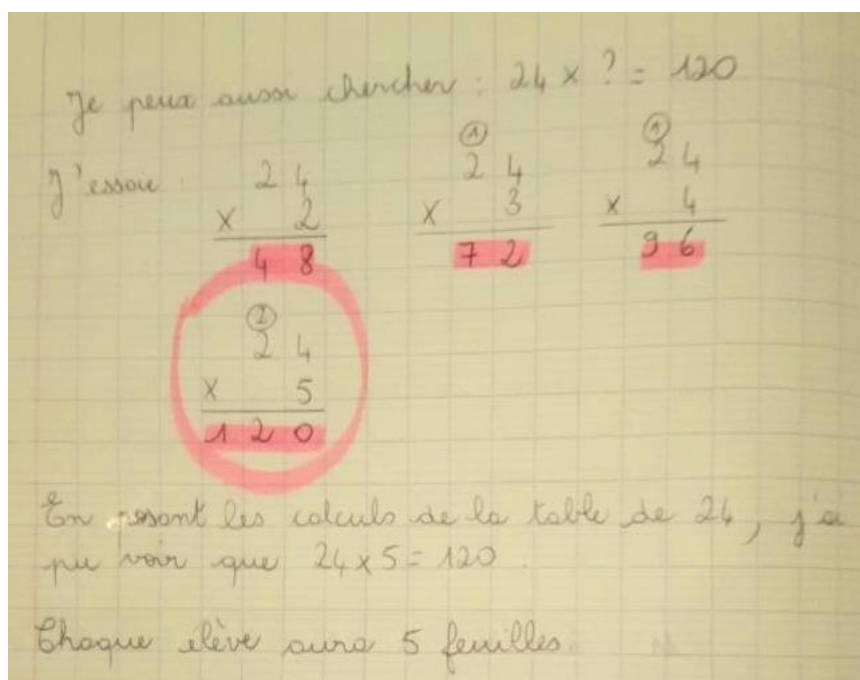 Je peux aussi chercher : 24 x ? = 120
J'essaie : 24 x 2 = 48
① 24 x 3 = 72
① 24 x 4 = 96
② 24 x 5 = 120
En posant les calculs de la table de 24, j'ai
pu voir que 24 x 5 = 120.
Chaque élève aura 5 feuilles.